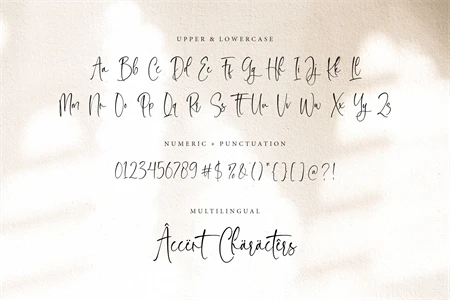 UPPER & LOWERCASE
Aa Bb Cc Dd Ee Ff Gg Hh Ii Jj Kk Ll
Mm Nn Oo Pp Qq Rr Ss Tt Uu Vv Ww Xx Yy Zz
NUMERIC + PUNCTUATION
0123456789#$%&'()*{}[]@?!
MULTILINGUAL
Âccënt Chäräctèrs